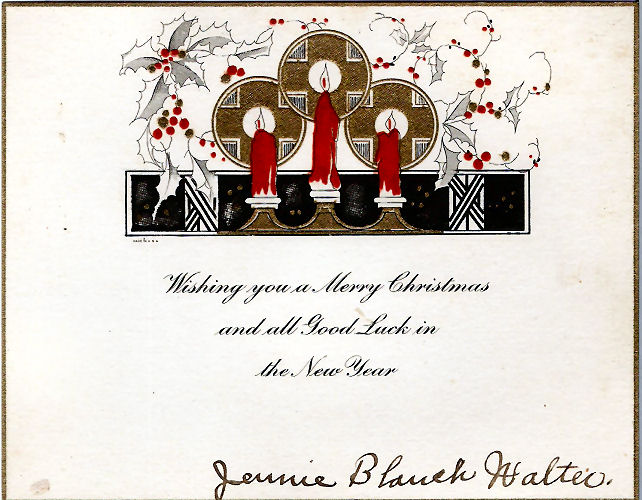 Wishing you a Merry Christmas
and all Good Luck in
the New Year
Jennie Blanch Walter.